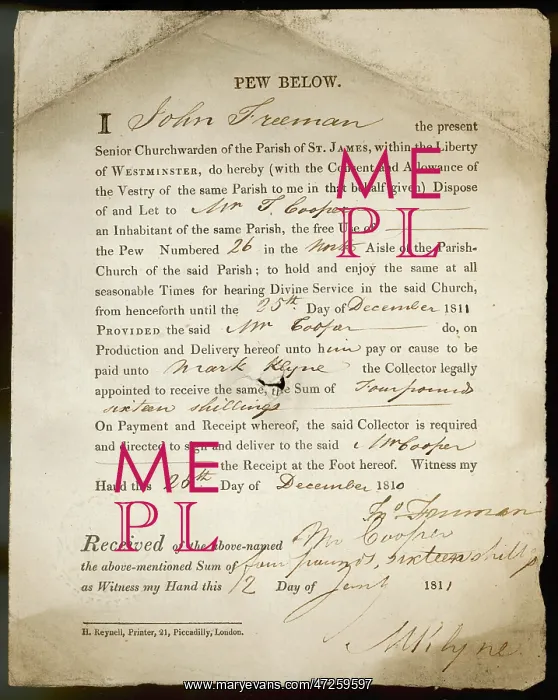 PEW BELOW.
I John Freeman the present
Senior Churchwarden of the Parish of ST. JAMES, within the Liberty
of WESTMINSTER, do hereby (with the Consent and Allowance of
the Vestry of the same Parish to me in that behalf given) Dispose
of and Let to Mr T. Cooper
an Inhabitant of the same Parish, the free Use of
the Pew Numbered 26 in the North Aisle of the Parish-
Church of the said Parish; to hold and enjoy the same at all
seasonable Times for hearing Divine Service in the said Church,
from henceforth until the 25th Day of December 1811
PROVIDED the said Mr Cooper do, on
Production and Delivery hereof unto him pay or cause to be
paid unto Mark Klyne the Collector legally
appointed to receive the same, the Sum of Four pounds
sixteen shillings
On Payment and Receipt whereof, the said Collector is required
and directed to sign and deliver to the said Mr Cooper
the Receipt at the Foot hereof. Witness my
Hand this Day of December 1810
Jno Freeman
Received of the above-named Mr Cooper
the above-mentioned Sum of four pounds, sixteen shillgs
as Witness my Hand this 12 Day of Jany 1811
H. Reynell, Printer, 21, Piccadilly, London.
M Klyne
ME
PL
ME
PL
www.maryevans.com/47259597